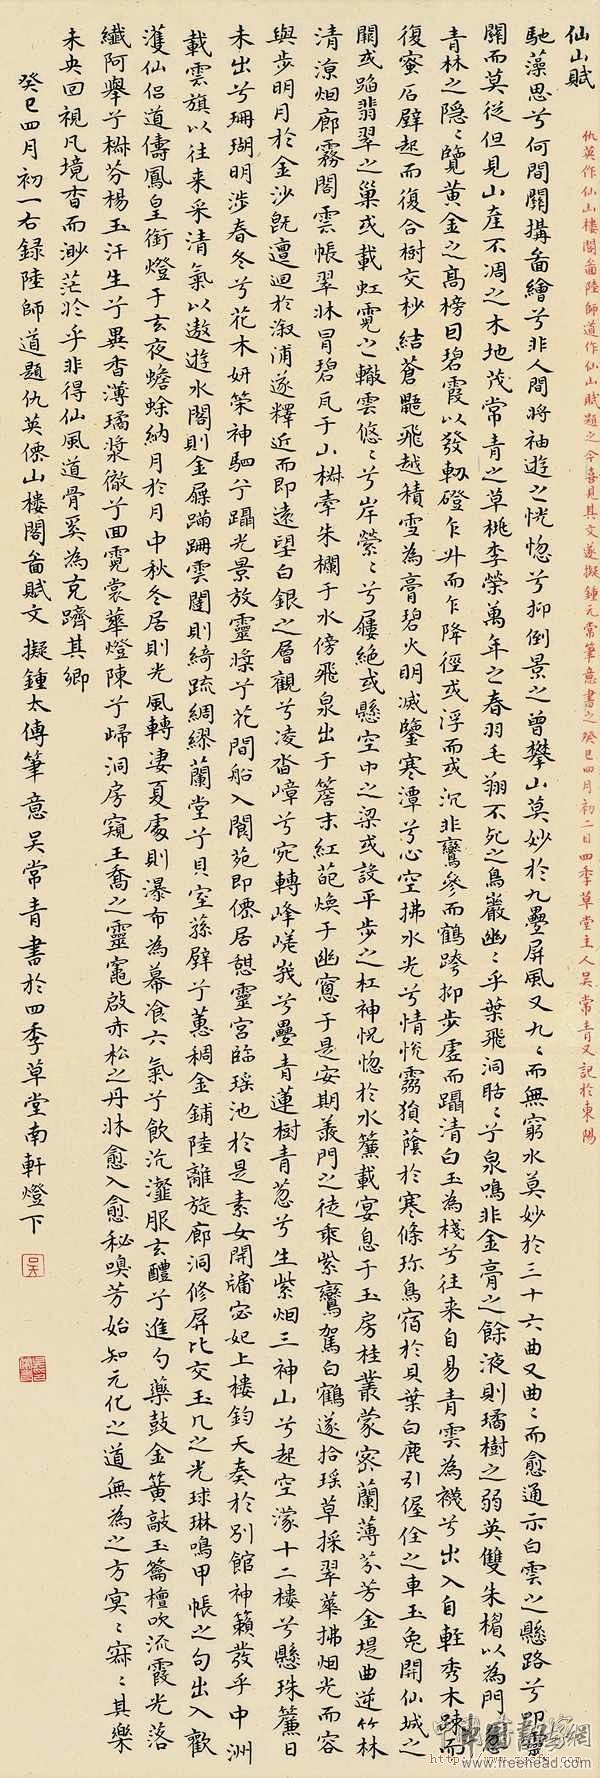 仙山賦
馳藻思兮何間關搆畵繪兮非人間將袖遊之恍惚兮抑倒景之曾攀山莫妙於九疊屏風又九〻而無窮水莫妙於三十六曲又曲〻而愈通示白雲之懸路兮即靈
關而莫從但見山產不凋之木地茂常青之草桃李榮萬年之春羽毛翔不死之鳥巖幽〻乎葉飛洞晧〻兮泉鳴非金膏之餘液則璚樹之弱英雙朱楣以為門
青林之隱〻覽黃金之高榜目碧霞以發軔磴乍升而乍降徑或浮而或沉非鸞參而鶴跨抑步虛而躡清白玉為棧兮往来自易青雲為襪兮出入自輊秀木踈而
復蜜石壁起而復合樹交杪結蒼鼯飛越積雪為膏碧火明滅鑒寒潭兮心空拂水光兮情悦霧損蔭於寒條珎鳥宿於貝葉白鹿引偓佺之車玉兔開仙城之
關或蹈翡翠之巢或載虹霓之轍雲悠〻兮岸縈〻兮屨絶或懸空中之梁或設平步之杠神恍惚於水簾載宴息于玉房桂叢蒙密蘭薄芬芳金堤曲逆竹林
清涼烟廊霧閣雲帳翠牀冒碧瓦于山樹牽朱欄于水傍飛泉出于簷末紅葩煥于幽窻于是安期羡門之徒乘紫鸞駕白鶴遂拾瑶草採翠華拂烟光而容
與步明月於金沙旣邅迴於溆浦遂釋近而即遠望白銀之層觀兮凌沓嶂兮宛轉峰嵯峩兮疊青蓮樹青葱兮生紫烟三神山兮起空濛十二樓兮懸珠簾日
未出兮珊瑚明涉春冬兮花木妍策神駟兮躡光景放靈槳兮花間船入閬苑即僊居憇靈宮臨瑶池於是素女開牖宓妃上樓鈞天奏於别館神籟發乎中洲
載雲旗以往来采清氣以遨遊水閣則金屧蹣跚雲閨則綺疏綢繆蘭堂兮貝室蓀壁兮蕙稠金鋪陸離旋廊洞修屏比交玉几之光球琳鳴甲帳之勾出入歡
濩仙侣道儔鳳皇銜燈于玄夜蟾蜍納月於月中秋冬居則光風轉淒夏處則瀑布為幕飡六氣兮飲沆瀣服玄醴兮進勺藥鼓金簧敲玉籥檀吹流霞光落
纖阿舉兮樹芬楊玉汗生兮異香薄璚漿徹兮囬霓裳華燈陳兮歸洞房窺王喬之靈竈啟赤松之丹牀愈入愈秘嗅芳始知元化之道無為之方寞〻寂〻其樂
未央回視凡境杳而渺茫於乎非得仙風道骨奚為克躋其鄉
癸巳四月初一右録陸師道題仇英僊山樓閣畵賦文擬鍾太傅筆意吴常青書於四季草堂南軒燈下
仇英作仙山樓閣畵陸師道作仙山賦題之今喜見其文遂擬鍾元常筆意書之癸巳四月初二日四季草堂主人吴常青又記於東陽
www.freehead.com